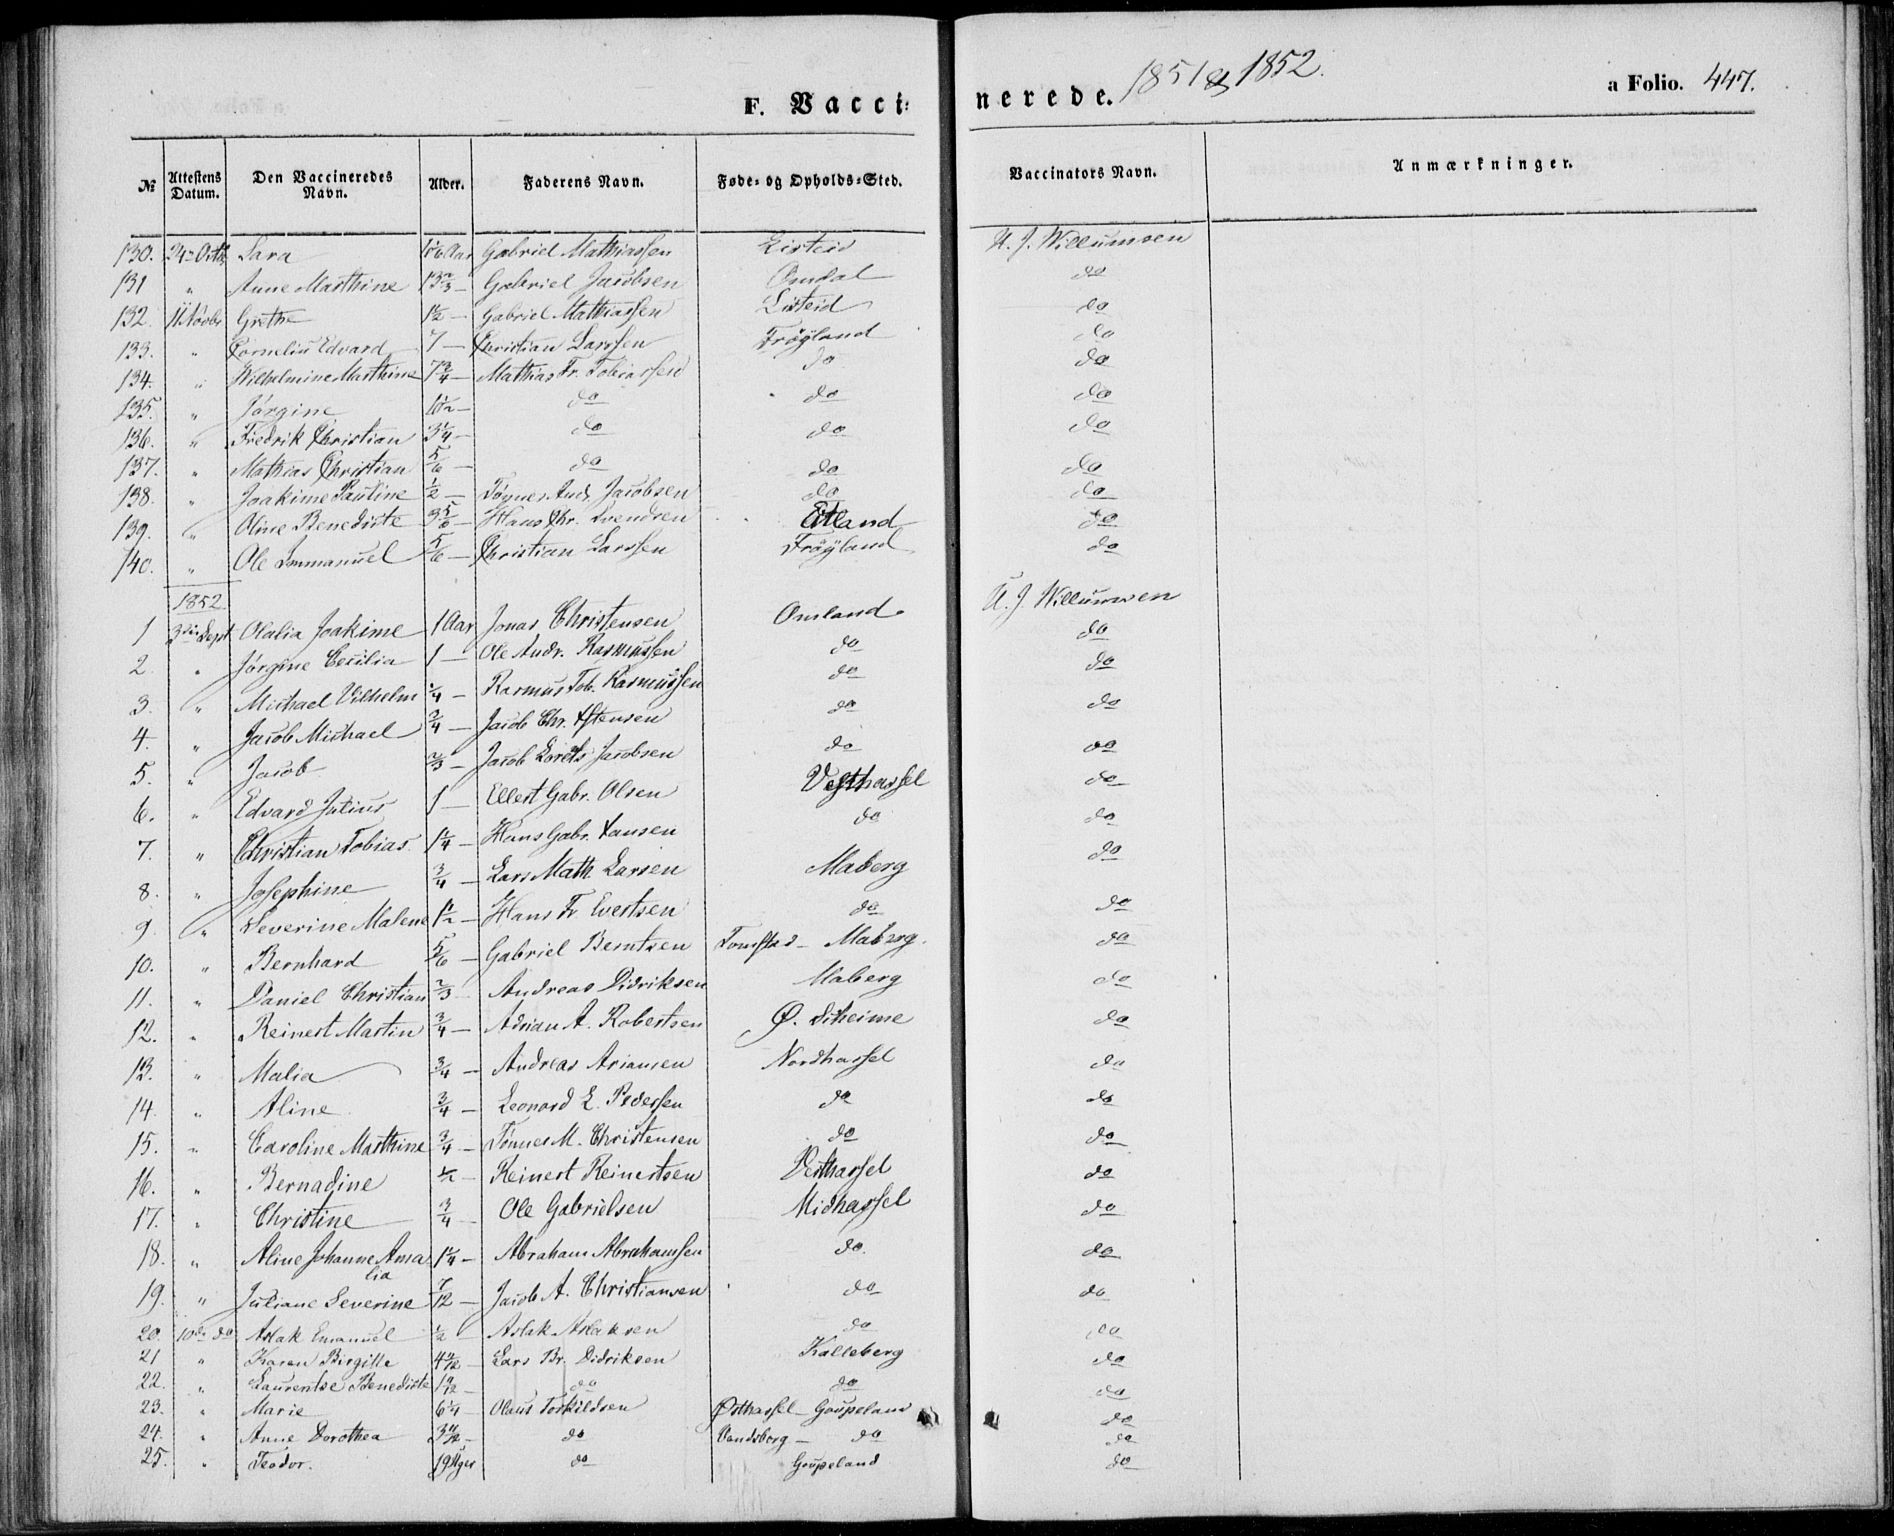 F. Vacci-
nerede. 1851 & 1852.
a Folio. 447.
№ | Attestens Datum. | Den Vaccineredes Navn. | Alder. | Faderens Navn. | Føde- og Opholds-Sted. | Vaccinators Navn. | Anmærkninger.
130. 24de Octb. Sara Aar Gabriel Mathiassen Listeid U. J. Willumsen
131 " Anne Marthine 13 2/3 — Gabriel Jacobsen Omdal do
132. 11 Novbr Grethe 1 1/2 — Gabriel Mathiassen Listeid do
133. " Cornelius Edvard 7 — Christian Larssen Frøyland do
134. " Wilhelmine Marthine 7 3/4 — Mathias Fr. Tobiassen do do
135. " Jørgine — do do do
136. " Fredrik Christian 3 1/4 — do do do
137. " Mathias Christian 5/6 — do do do
138. " Joakime Pauline 1/2 — Tønnes Andr. Jacobsen do do
139. " Oline Benedicte 3 5/6 — Hans Chr. Svendsen Etland do
140. " Ole Emmanuel 5/6 — Christian Larssen Frøyland do
1852.
1 3die Sept. Olalia Joakime 1 Aar Jonas Christensen Omland U. J. Willumsen
2. " Jørgine Cecilia 1 — Ole Andr. Rasmussen do do
3. " Michael Vilhelm 1/4 — Rasmus Tob. Rasmussen do do
4. " Jacob Michael 3/4 — Jacob Chr. do do
5. " Jacob 2/3 — Jacob Lorents Jacobsen do do
6. " Edvard Julius 1 — Ellert Gabr. Olsen Vesthassel do
7. " Christian Tobias 1 1/4 — Hans Gabr. Hansen do do
8. " Josephine 3/4 — Lars Math. Larsen Maberg do
9. " Severine Malene 1 1/2 — Hans Fr. Evertsen do do
10. " Bernhard 5/6 — Gabriel Berntsen Tomstad — Maberg. do
11. " Daniel Christian 2/3 Andreas Didriksen Maberg do
12. " Reinert Martin 3/4 — Adrian A. Robertsen Ø. do
13. " Malia 3/4 — Andreas Ariansen Nordhassel do
14. " Aline 3/4 — Leonard L. Pedersen do do
15. " Caroline Marthine 3/4 — Tønnes M. Christensen do do
16. " Bernadine 1/2 — Reinert Reinertsen Vesthassel do
17. " Christine 3/4 — Ole Gabrielsen Midhassel do
18. " Aline Johanne Amalia 1 1/4 — Abraham Abrahamsen do. do
19. " Juliane Severine 7/12 — Jacob A. Christiansen do do
20. 10de do Aslak Emanuel 1/2 — Aslak Aslaksen do do
21 " Karen Birgitte — Lars Br. Didriksen Kalleberg do
22. " Laurentse Benedicte — do do do
23. " Marie 6 1/4 — Olaus Torkildsen Østhassel — Goupeland do
24. " Anne Dorothea — do Vandsborg — do do
25. " Teodor. 19 Uger do Goupeland do